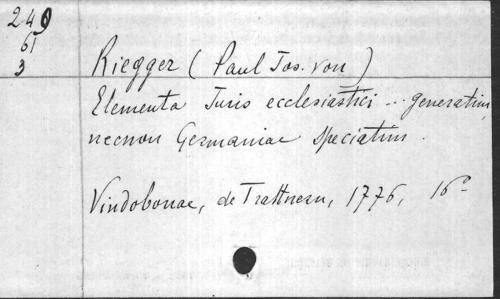 240
61
3
Riegger (Paul Jos. von)
Elementa Juris ecclesiastici ... generatim,
necnon Germaniae speciatim.
Vindobonae, de Trattnern, 1776, 16°